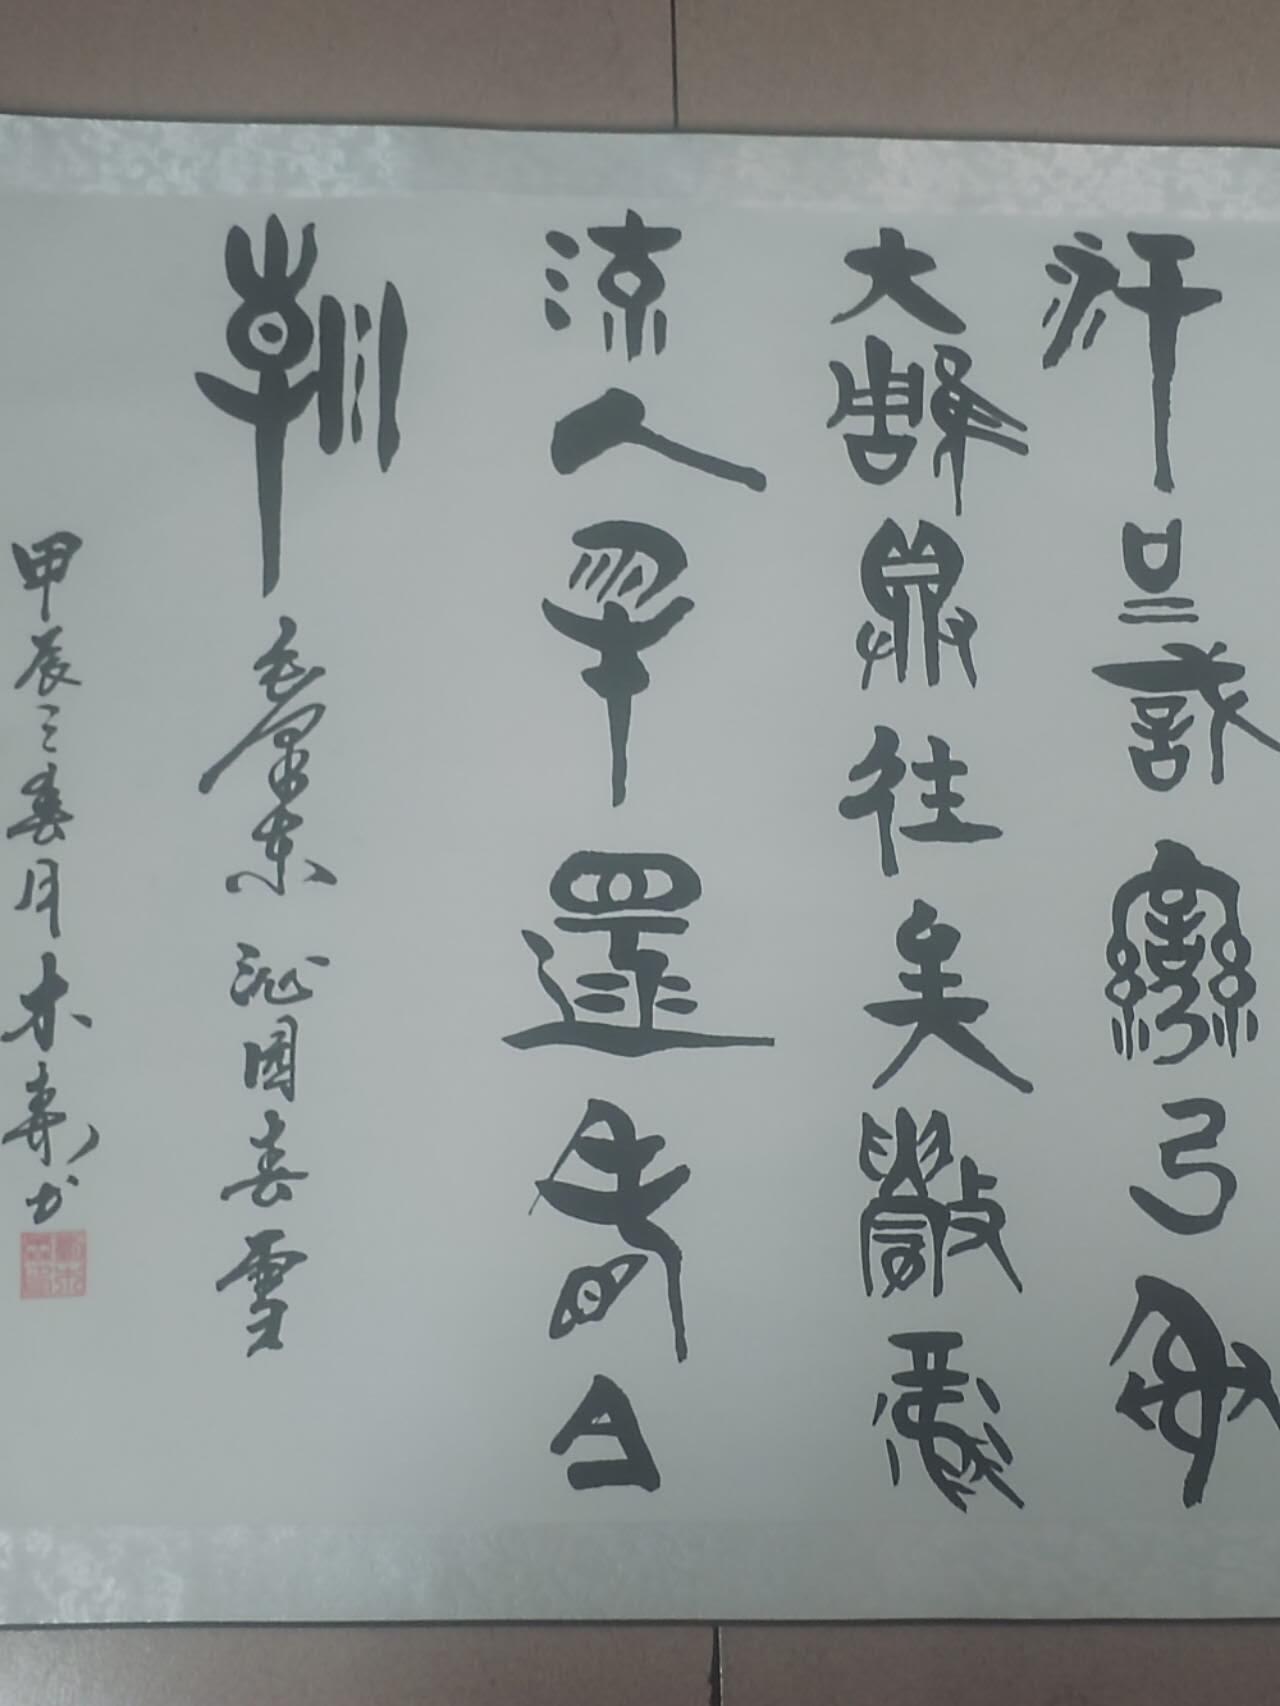 汗只識彎弓射
大雕俱往矣數風
流人物還看今
朝 毛澤東 沁園春雪
甲辰之春月木書